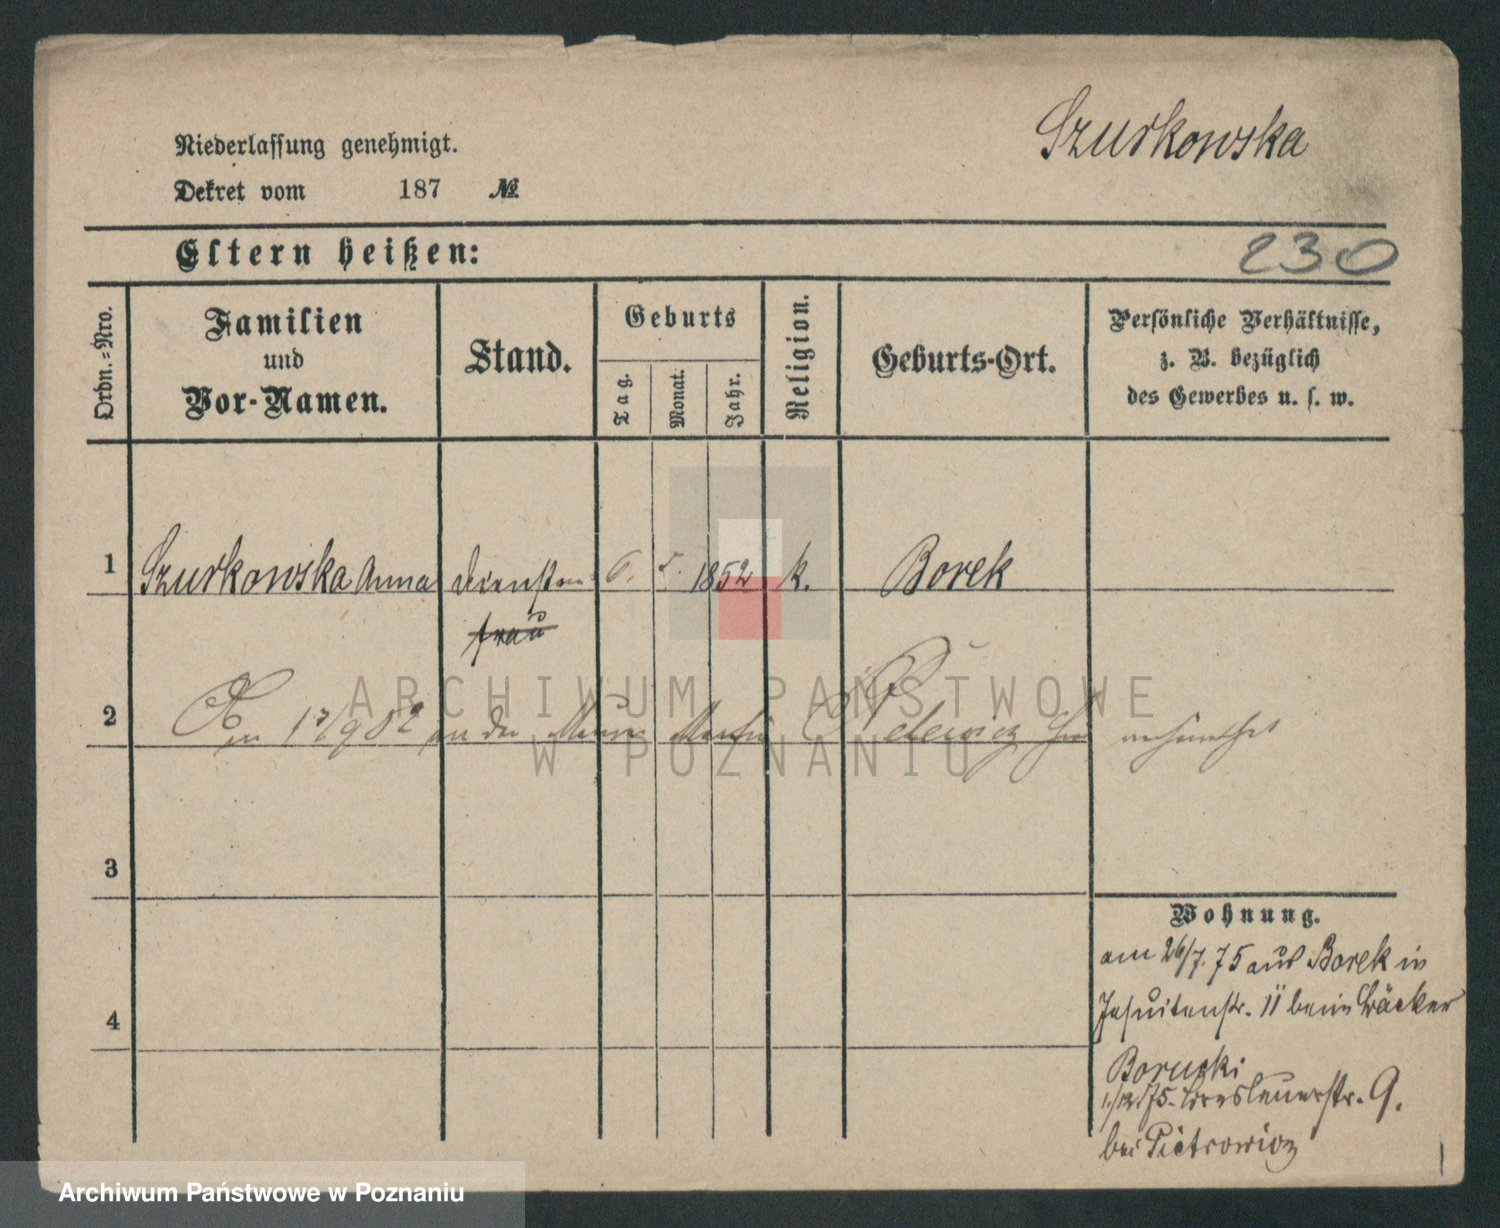 Szurkowska
Niederlassung genehmigt.
Dekret vom 187 №
Eltern heißen:
230
Ordn.-Nro.
Familien
und
Vor-Namen.
Stand.
Geburts
Tag.
Monat.
Jahr.
Religion.
Geburts-Ort.
Persönliche Verhältnisse,
z. B. bezüglich
des Gewerbes u. s. w.
1 Szurkowska Anna 6. 5. 1852 k. Borek
frau
2 17/9 82 an den
3
4
Wohnung.
am 26/7. 75 aus Borek in
Jesuitenstr. 11 beim Bäcker
Borucki
1./12. 75. Breslauerstr. 9.
bei Pietrowicz
ARCHIWUM PAŃSTWOWE
W POZNANIU
Archiwum Państwowe w Poznaniu